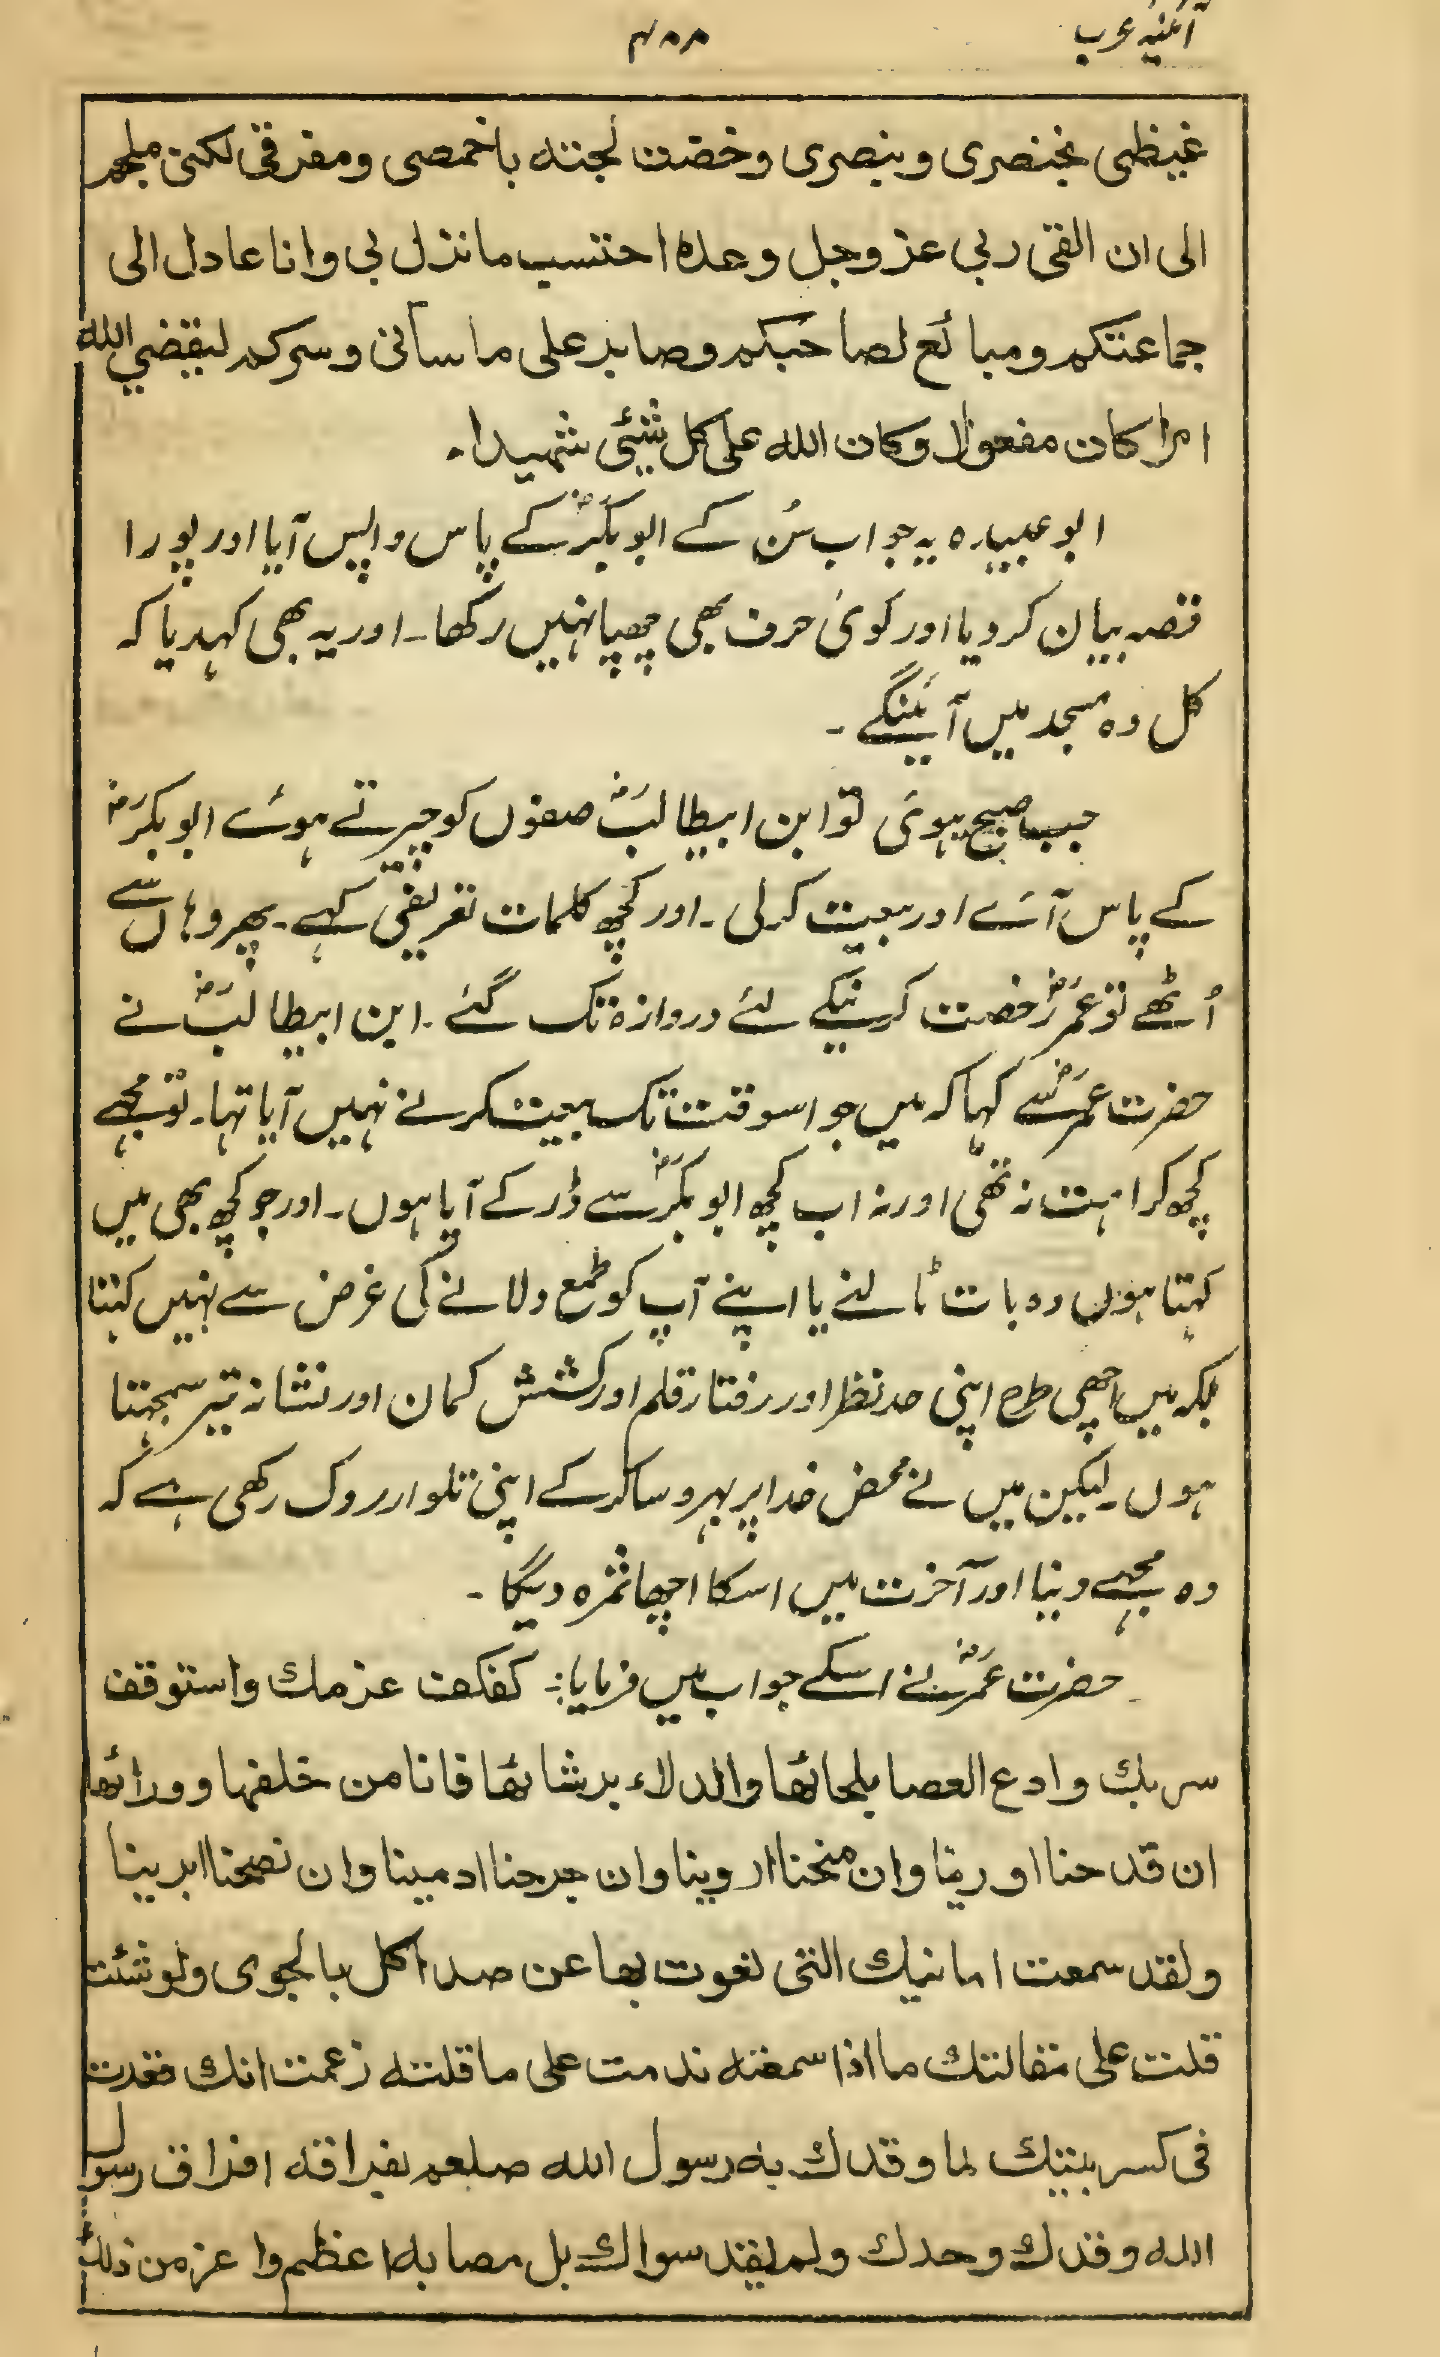 آئینۂ عرب
۴۸۸
غيظى بخنصرى وبنصرى وخضت لجته باخمصى ومفرقى لكنى ملجم
الى ان القى ربى عز وجل وعده احتسب ما نزل بى وانا عادل الى
جماعتكم ومبائع لصاحبكم وصابر على ما سآنى وسركم ليقضي الله
امرا كان مفعولا وكان الله على كل شيئى شهيدا۔
ابو عبیدہ یہ جواب سُن کے ابوبکرؓ کے پاس واپس آیا اور پورا
قصہ بیان کر دیا اور کوئی حرف بھی چھپا نہیں رکھا۔ اور یہ بھی کہدیا کہ
کل وہ مسجد میں آئینگے۔
جب صبح ہوئی تو ابن ابیطالبؓ صفوں کو چیرتے ہوئے ابوبکرؓ
کے پاس آئے اور بیعت کرلی۔ اور کچھ کلمات تعریفی کہے۔ پھر وہاں سے
اُٹھے تو عمرؓ رخصت کرنیکے لئے دروازہ تک گئے۔ ابن ابیطالبؓ نے
حضرت عمرؓ سے کہا کہ میں جو اسوقت تک بیعت کرنے نہیں آیا تہا۔ تو مجھے
کچھ کراہت نہ تھی اور نہ اب کچھ ابوبکرؓ سے ڈر کے آیا ہوں۔ اور جو کچھ بھی میں
کہتا ہوں وہ بات ٹالنے یا اپنے آپ کو طمع دلانے کی غرض سے نہیں کہتا
بلکہ میں اچھی طرح اپنی حد نظر اور رفتار قلم اور کشش کمان اور نشانہ تیر سمجہتا
ہوں۔ لیکن میں نے محض خدا پر بہروسا کر کے اپنی تلوار روک رکھی ہے کہ
وہ مجہے دنیا اور آخرت میں اسکا اچھا ثمرہ دیگا۔
حضرت عمرؓ نے اسکے جواب میں فرمایا:۔ كفكفت عزمك واستوقف
سربك وادع العصا بلحائها والدلاء برشائها فانا من خلفها وورائها
ان قدحنا اورينا وان منحنا اروينا وان جرحنا ادمينا وان نصحنا ابرينا
ولقد سمعت امانيك التى لغوت بها عن صدر اكل بالجوى ولو شئت
قلت على مقالتك ما اذا سمعته ندمت على ما قلته زعمت انك قعدت
فى كسر بيتك لما وقدك به رسول الله صلعم بفراقه افراق رسول
الله وقدك وحدك ولم يقد سواك بل مصابه اعظم واعز من ذلك